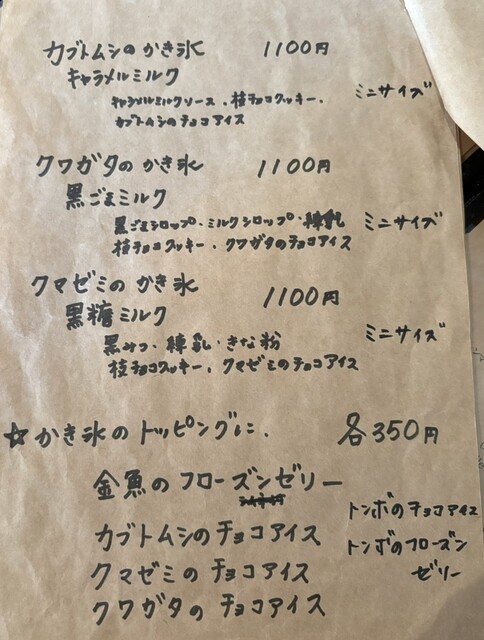 カブトムシのかき氷 1100円
キャラメルミルク
キャラメルミルクソース、枝チョコクッキー、 ミニサイズ
カブトムシのチョコアイス
クワガタのかき氷 1100円
黒ごまミルク
黒ごまシロップ・ミルクシロップ・練乳 ミニサイズ
枝チョコクッキー、クワガタのチョコアイス
クマゼミのかき氷 1100円
黒糖ミルク
黒みつ・練乳・きな粉 ミニサイズ
枝チョコクッキー、クマゼミのチョコアイス
☆かき氷のトッピングに、 各350円
金魚のフローズンゼリー
カブトムシのチョコアイス
クマゼミのチョコアイス
クワガタのチョコアイス
トンボのチョコアイス
トンボのフローズン
ゼリー